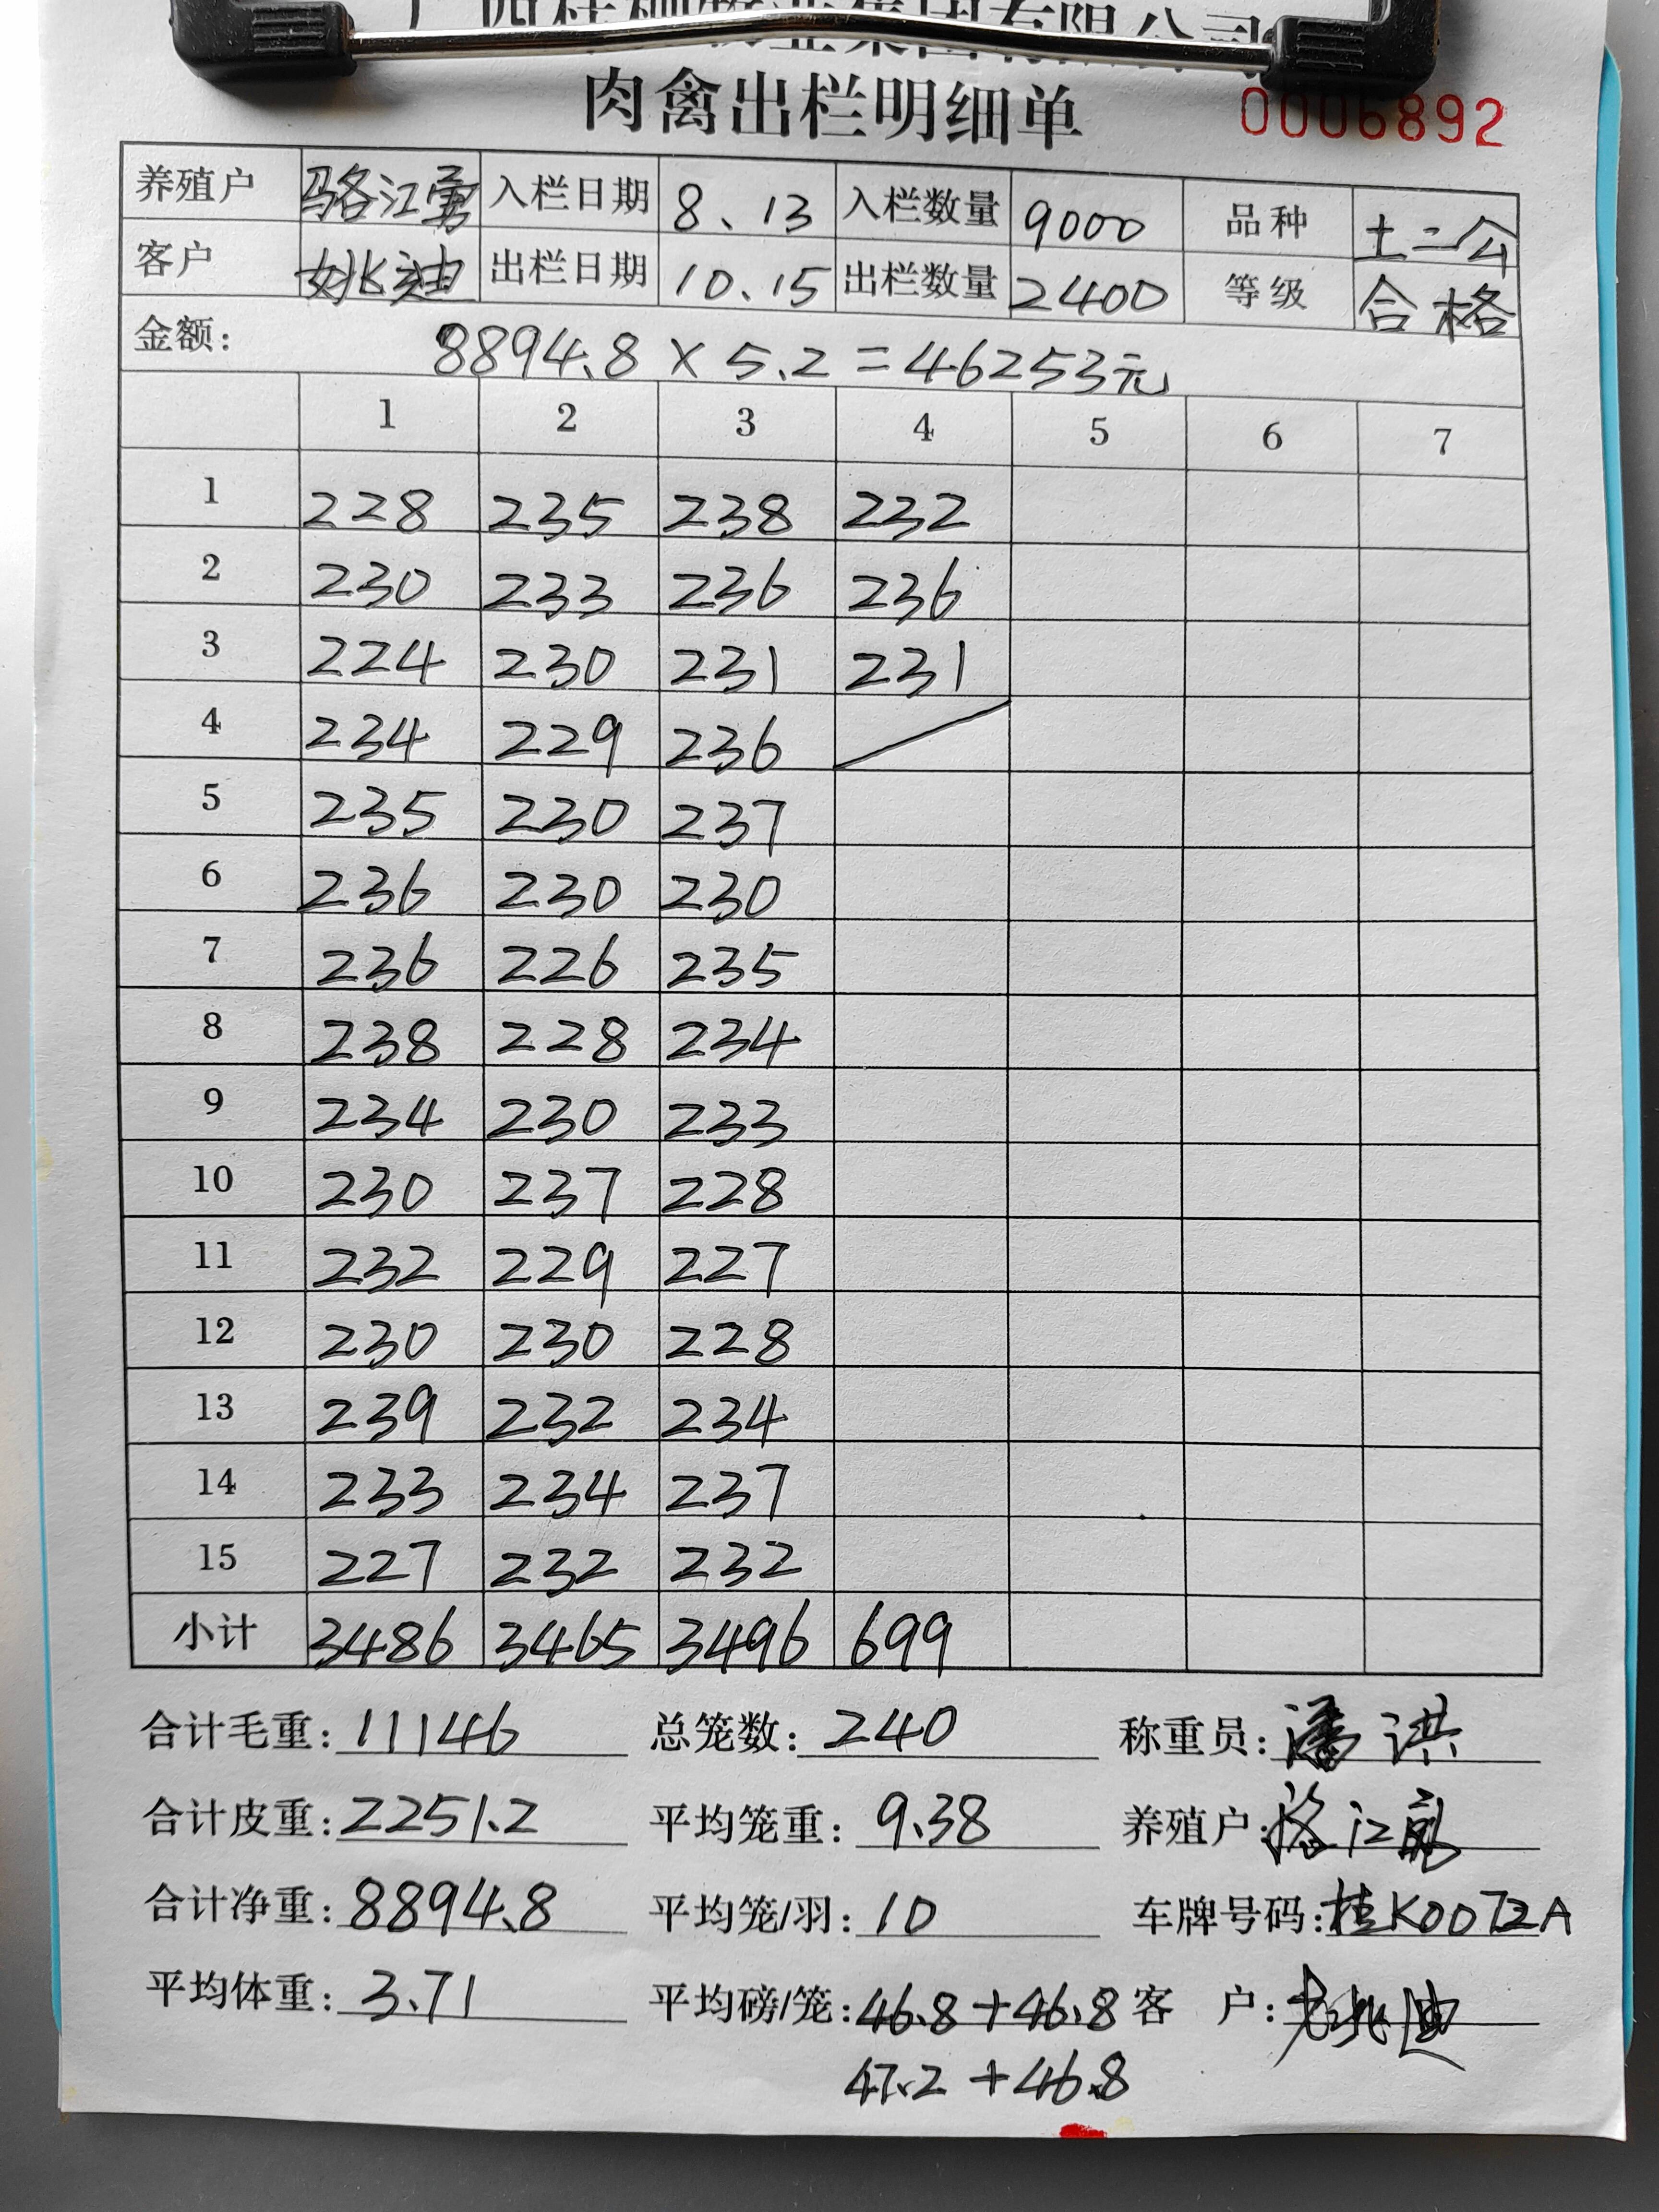 肉禽出栏明细单 0006892
养殖户 骆江勇 入栏日期 8、13 入栏数量 9000 品种 土二公
客户 姚迪 出栏日期 10、15 出栏数量 2400 等级 合格
金额: 8894.8 × 5.2 = 46253元
1 2 3 4 5 6 7
1 228 235 238 232
2 230 233 236 236
3 224 230 231 231
4 234 229 236
5 235 230 237
6 236 230 230
7 236 226 235
8 238 228 234
9 234 230 233
10 230 237 228
11 232 229 227
12 230 230 228
13 239 232 234
14 233 234 237
15 227 232 232
小计 3486 3465 3496 699
合计毛重: 11146 总笼数: 240 称重员: 潘洪
合计皮重: 2251.2 平均笼重: 9.38 养殖户: 骆江勇
合计净重: 8894.8 平均笼/羽: 10 车牌号码: 桂K0072A
平均体重: 3.71 平均磅/笼: 46.8+46.8 客 户: 姚迪
47.2+46.8